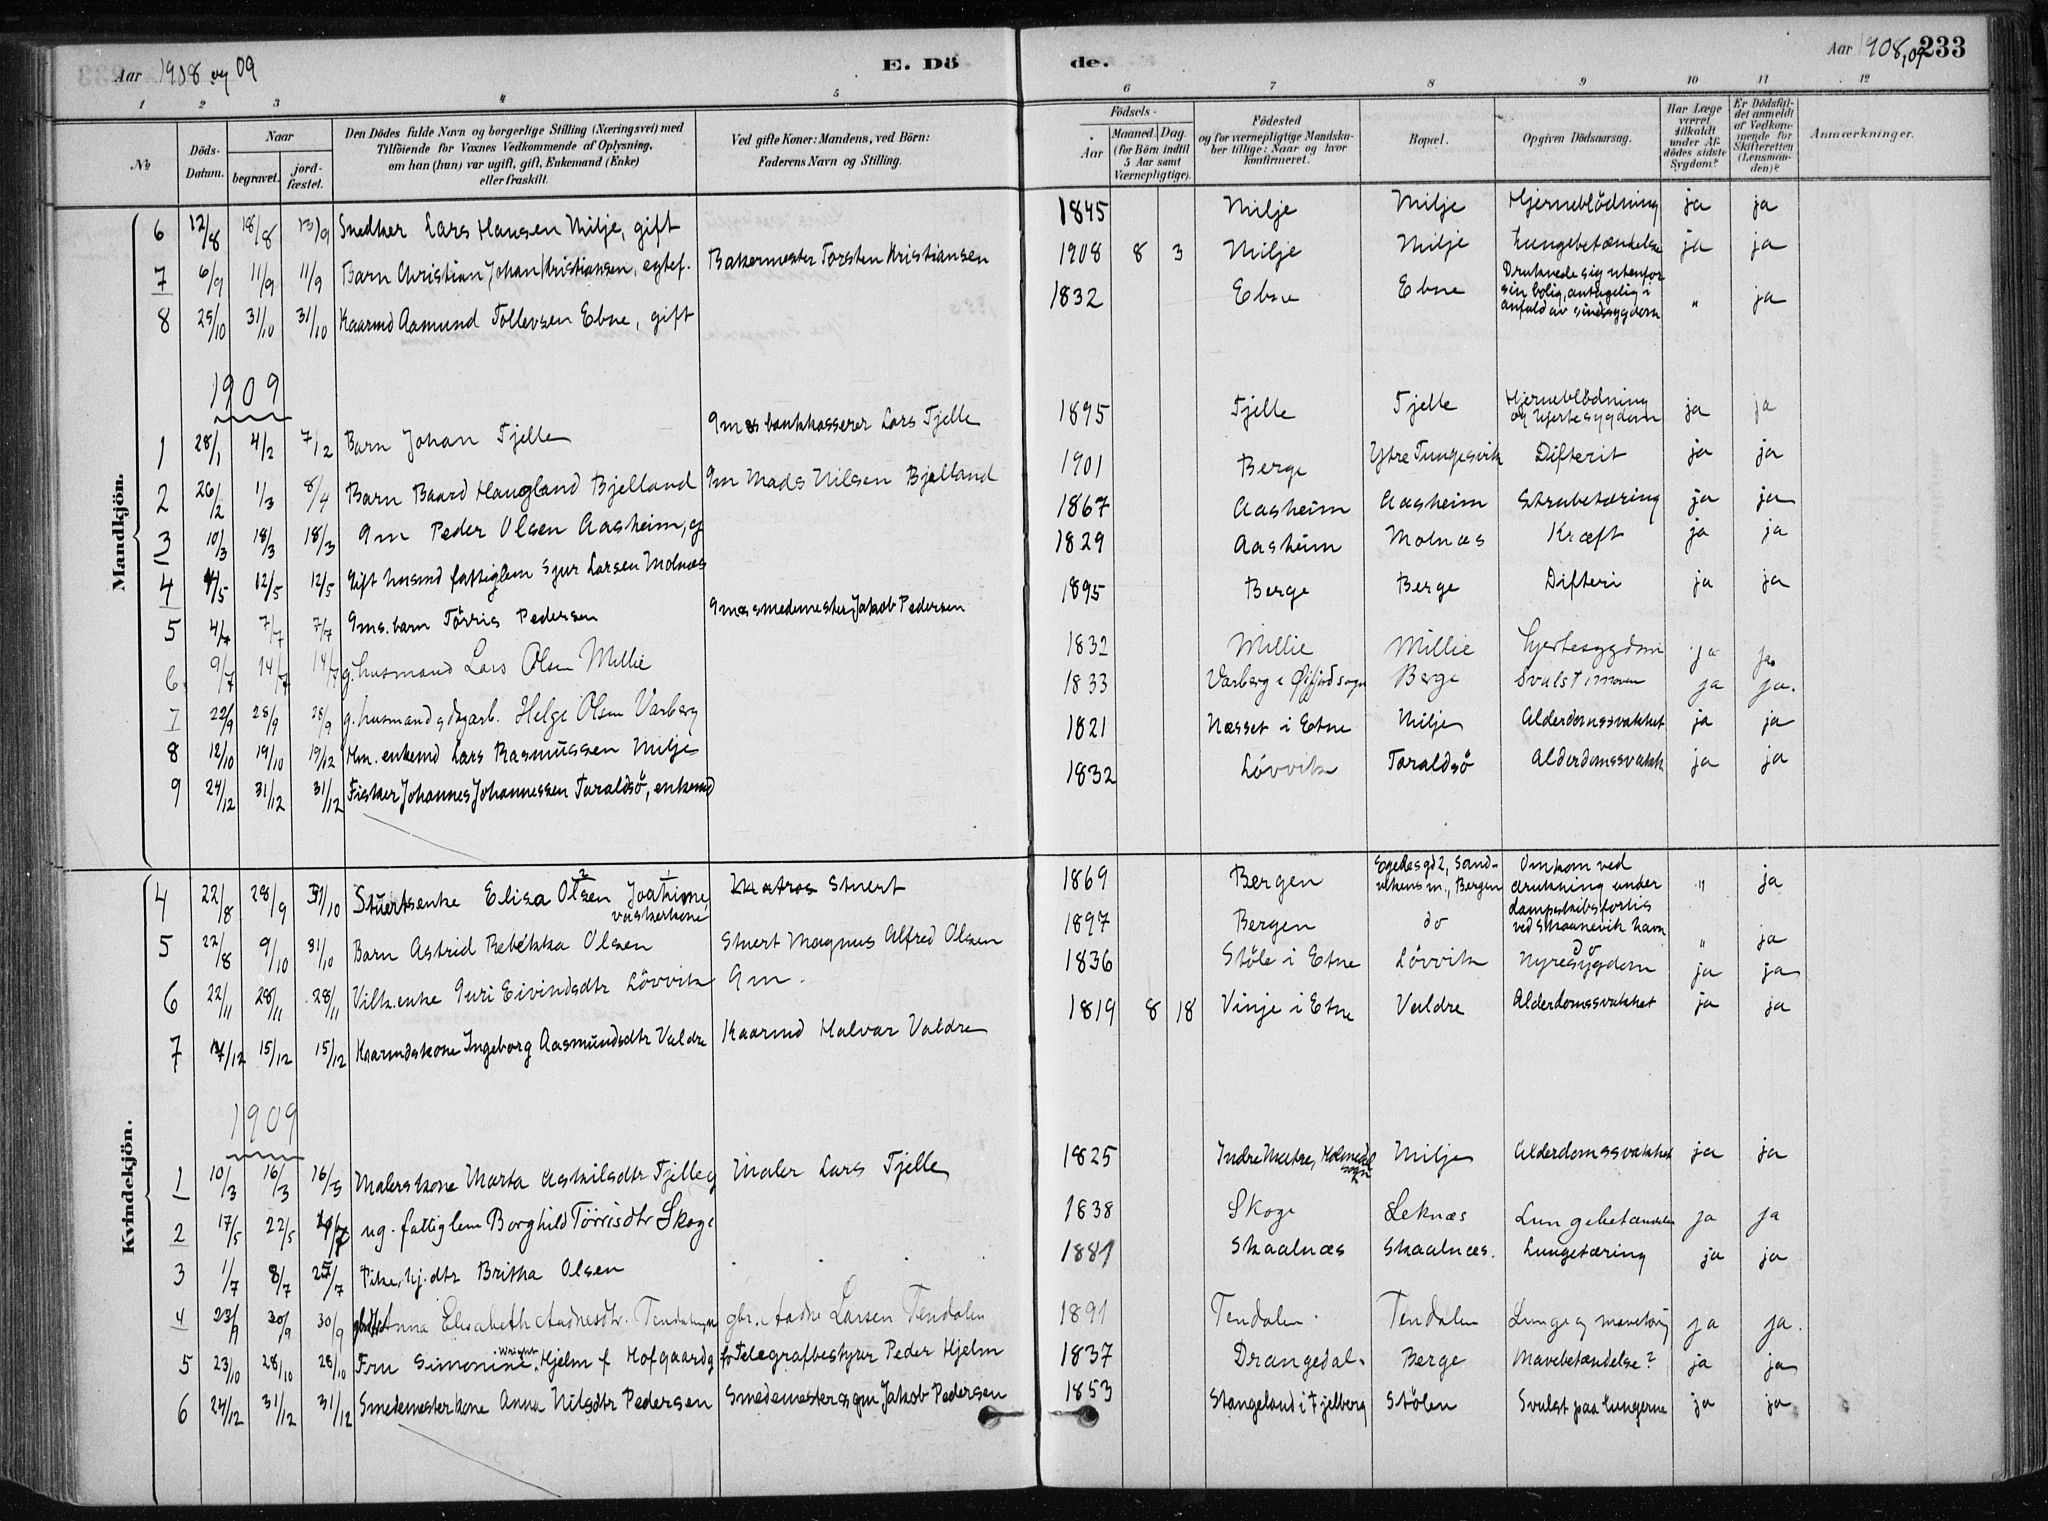 Aar 1908 og 09
E. Dö
de.
Aar 1908,09
233
1 2 3 4 5 6 7 8 9 10 11 12
No
Döds-Datum.
Naar
begravet.
jord-fæstet.
Den Dödes fulde Navn og borgerlige Stilling (Næringsvei) med
Tilföiende for Voxnes Vedkommende af Oplysning,
om han (hun) var ugift, gift, Enkemand (Enke)
eller fraskilt.
Ved gifte Koner: Mandens, ved Börn:
Faderens Navn og Stilling.
Födsels-
Aar
Maaned. Dag.
(for Börn indtil
5 Aar samt
Værnepligtige).
Födested
og for værnepligtige Mandska-
ber tillige: Naar og hvor
konfirmeret.
Bopæl.
Opgiven Dödsaarsag.
Har Læge
været
tilkaldt
under Af-
dödes sidste
Sygdom?
Er Dödsfal-
det anmeldt
af Vedkom-
mende for
Skifteretten
(Lensman-
den)?
Anmærkninger.
Mandkjön.
6 12/8 18/8 13/9 Snedker Lars Hansen Milje, gift 1845 Milje Milje Hjerneblödning ja ja
7 6/9 11/9 11/9 Barn Christian Johan Kristiansen, egtef. Bakermester Torsten Kristiansen 1908 8 3 Milje Milje Lungebetændelse ja ja
8 25/10 31/10 31/10 Kaarmd Aamund Tollevsen Ebne, gift 1832 Ebne Ebne Druknede sig utenfor
sin bolig, antagelig i
anfald av sindssygdom " ja
1909
1 28/1 4/2 7/2 Barn Johan Tjelle Gmds bankkasserer Lars Tjelle 1895 Tjelle Tjelle Hjerneblödning
og hjertesygdom ja ja
2 26/2 1/3 8/4 Barn Baard Haugland Bjelland Gm Mads Nilsen Bjelland 1901 Berge Ytre Tungesvik Difterit ja ja
3 10/3 18/3 18/3 Gm Peder Olsen Aasheim, g 1867 Aasheim Aasheim Strubetæring ja ja
4 4/5 12/5 12/5 Gift husmd fattiglem Sjur Larsen Molnæs 1829 Aasheim Molnæs Kræft ja ja
5 4/7 7/7 7/7 Gms. barn Törris Pedersen Gmds smedemester Jakob Pedersen 1895 Berge Berge Difteri ja ja
6 9/7 14/7 14/7 g. husmand Lars Olsen Millie 1832 Millie Millie hjertesygdom ja ja
7 22/9 28/9 28/9 g. husmand g dagarb. Helge Olsen Varberg 1833 Varberg i Ølfjord sogn Berge Svulst i maven ja ja.
8 12/10 19/10 19/12 Hm. enkemd Lars Rasmussen Milje 1821 Næsset i Etne Milje Alderdomssvakhet ja ja
9 24/12 31/12 31/12 Fisker Johannes Johannessen Taraldsö, enkemd 1832 Lövvik Taraldsö Alderdomssvakh ja ja
Kvindekjön.
4 22/8 28/9 31/10 Stuertsenke Elisa Olsen Joakime,
vaskerkone Stuert 1869 Bergen Egedesgd 2, Sand-
vikens m., Bergen Omkom ved
drukning under
dampskibsforlis
ved Skaanevik havn " ja
5 22/8 9/10 31/10 Barn Astrid Rebekka Olsen Stuert Magnus Alfred Olsen 1897 Bergen do do " ja
6 22/11 28/11 28/11 Vilk. enke Guri Eivindsdtr Lövvik Gm. 1836 Støle i Etne Lövvik Nyresygdom ja ja
7 7/12 15/12 15/12 Kaarmdskone Ingeborg Aasmundsdtr Valdre Kaarmd Halvar Valdre 1819 8 18 Vinje i Etne Valdre Alderdomssvakhet ja ja
1909
1 10/3 16/3 16/3 Malerskone Marta Askilsdtr Tjelle g Maler Lars Tjelle 1825 Indre Matre, Holmedal
sogn Milje Alderdomssvakhet ja ja
2 17/5 22/5 ug. fattiglem Borghild Törrisdtr Skoge 1838 Skoge Leknæs Lungebetændelse ja ja
3 1/7 8/7 25/7 Pike, hj. dtr Britha Olsen 1881 Skaalnæs Skaalnæs. Lungetæring ja ja
4 23/9 30/9 30/9 Anna Elisabeth Aadnesdtr. Tendalen gbr. Aadne Larsen Tendalen 1891 Tendalen Tendalen Lunge og mavetæring ja ja.
5 23/10 28/10 28/10 Fru Simonine Hjelm f. Hofgaard g fv Telegrafbestyrer Peder Hjelm 1837 Drangedal. Berge Mavebetændelse? ja ja
6 24/12 31/12 31/12 Smedemesterkone Anna Nilsdtr Pedersen Smedemester gm Jakob Pedersen 1853 Stangeland i Fjelberg Stölen Svulst paa lungerne ja ja